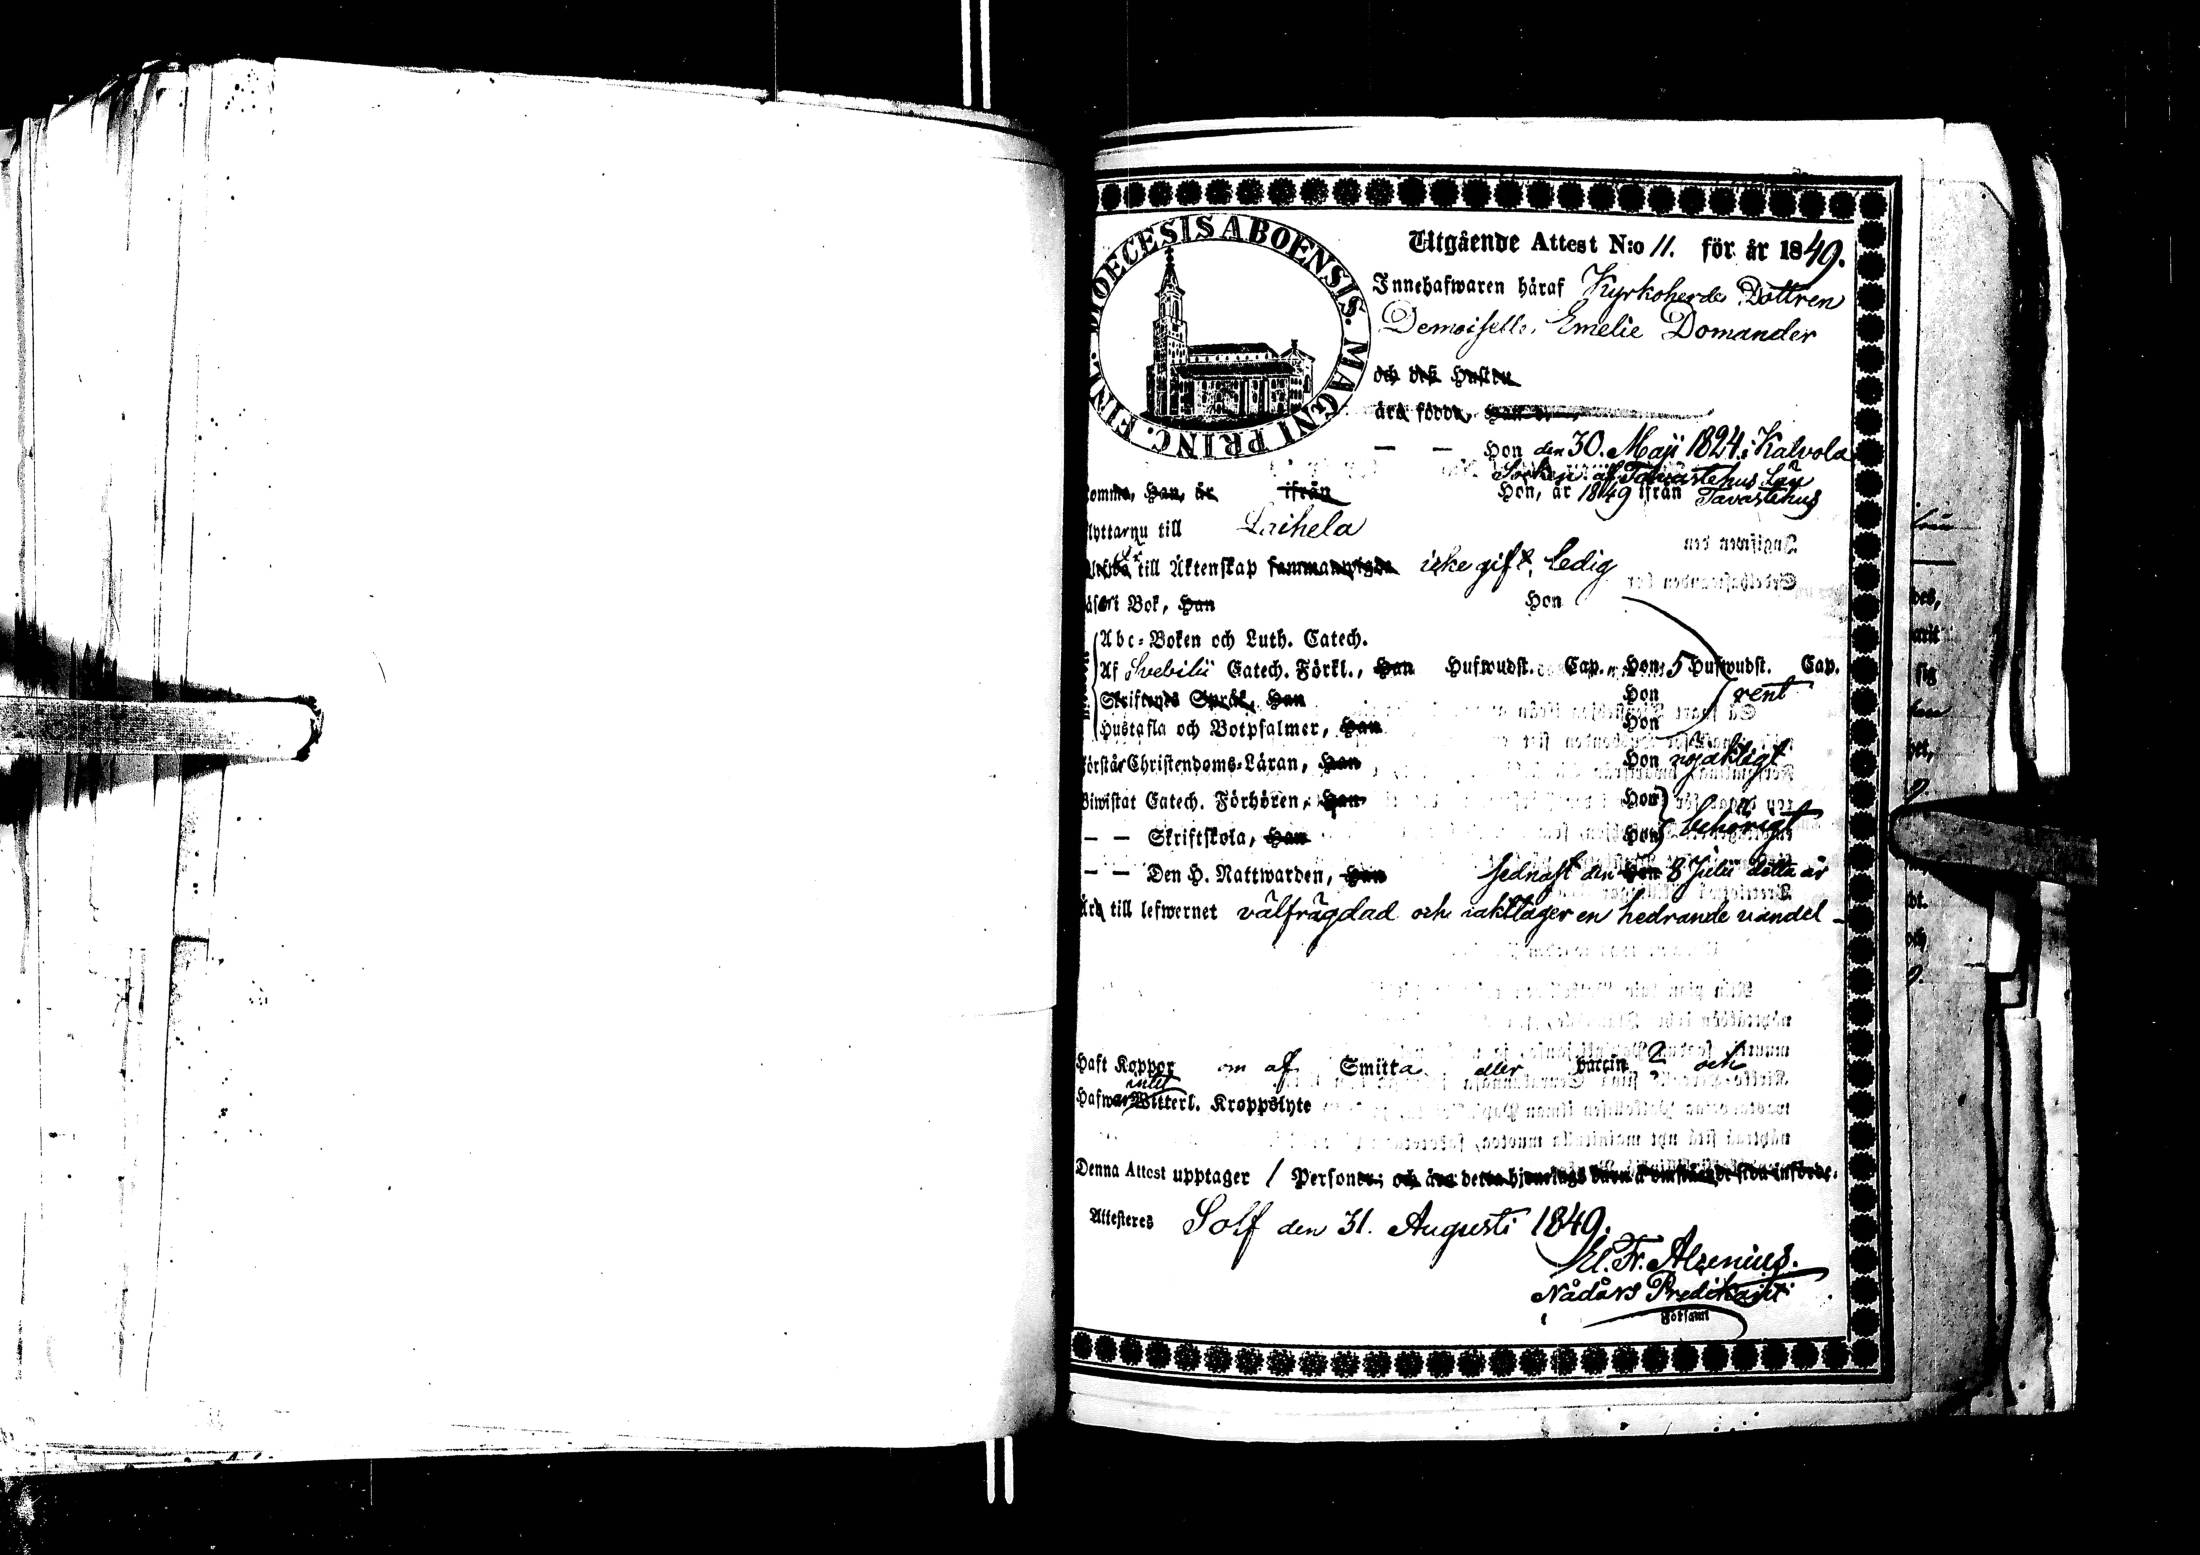 DIOECESIS ABOENSIS. MAGNI PRINC. FINL.
Utgående Attest N:o 11. för år 1849.
Innehafwaren häraf Kyrkoherde Dottren
Demoiselle Emelie Domander
och dess Hustru
äro födde, Han
— — Hon den 30. Maji 1824 i Kalvola
Socken af Tavastehus Län
komma, Han, år ifrån Hon, år 1849 ifrån Tavastehus
flyttar nu till Laihela
Är till Äktenskap icke gift, ledig
Bok, Han Hon
Abc-Boken och Luth. Catech.
Af Svebilii Catech. Förkl., Han Hufwudst. Cap. Hon 5 Hufwudst. Cap.
Skriftenes Språk, Han Hon rent
Hustafla och Botpsalmer, Han Hon
Förstår Christendoms-Läran, Han Hon nöjaktigt
Biwistat Catech. Förhören, Han Hon
— — Skriftskola, Han Hon behörigt
— — Den H. Nattwarden, Han sednast den Hon 8 Julii detta år
till lefwernet välfrägdad och iakttager en hedrande vandel –
Haft Koppor om af Smitta eller vaccin ? och
Hafwer intet Witterl. Kroppslyte
Denna Attest upptager 1 Personer; och
Attesteres Solf den 31. Augusti 1849.
El. Fr. Alcenius.
Nådårs Predikant
Församl